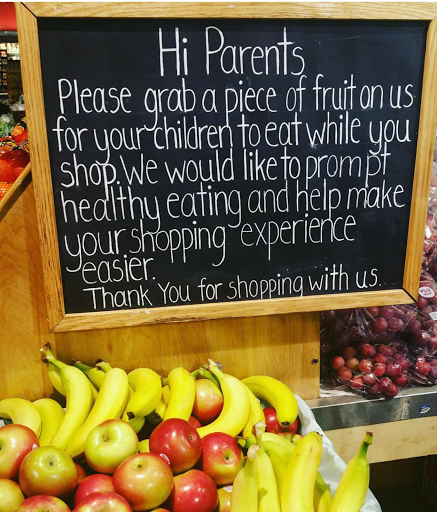 Hi Parents
Please grab a piece of fruit on us
for your children to eat while you
shop. We would like to prompt
healthy eating and help make
your shopping experience
easier.
Thank You for shopping with us.